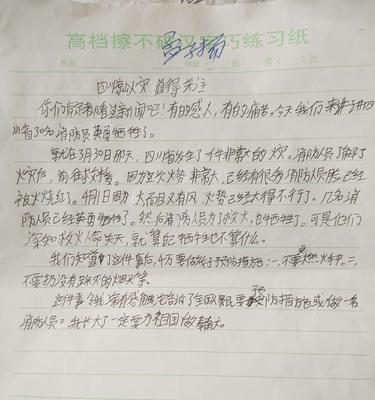 高档擦不破汉字巧练习纸
四川火灾 值得关注
你们肯定看过新闻吧！有的感人，有的痛苦。今天我们来讲讲四
川省30名消防员英勇牺牲了。
就在3月30日那天，四川发生了一件非常大的火灾。消防员了解了
火灾后，前往救援。因为这次火势非常大，已经有很多消防员
被火烧红了。4月1日因为大而且又有风，火势已经大得不行了。几名消
防人员已经英勇牺牲了。然后消防人员为了救火，也牺牲了。可是他们
深知救火人命关天，就算牺牲也不算什么。
我们知道了这件事后，千万要做好预防措施：一，不要点燃火种。二，
不要扔没有踩灭的烟火等。
这件事令我深有感触，它告诉了全国人民要预防措施或做一名
消防人员。我长大了一定要为祖国做